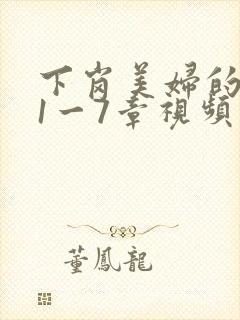 下岗美婦的
1一7章視頻
董鳳龍